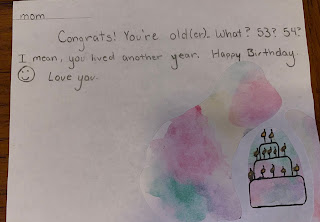 mom
Congrats! You're old(er). What? 53? 54?
I mean, you lived another year. Happy Birthday.
Love you.